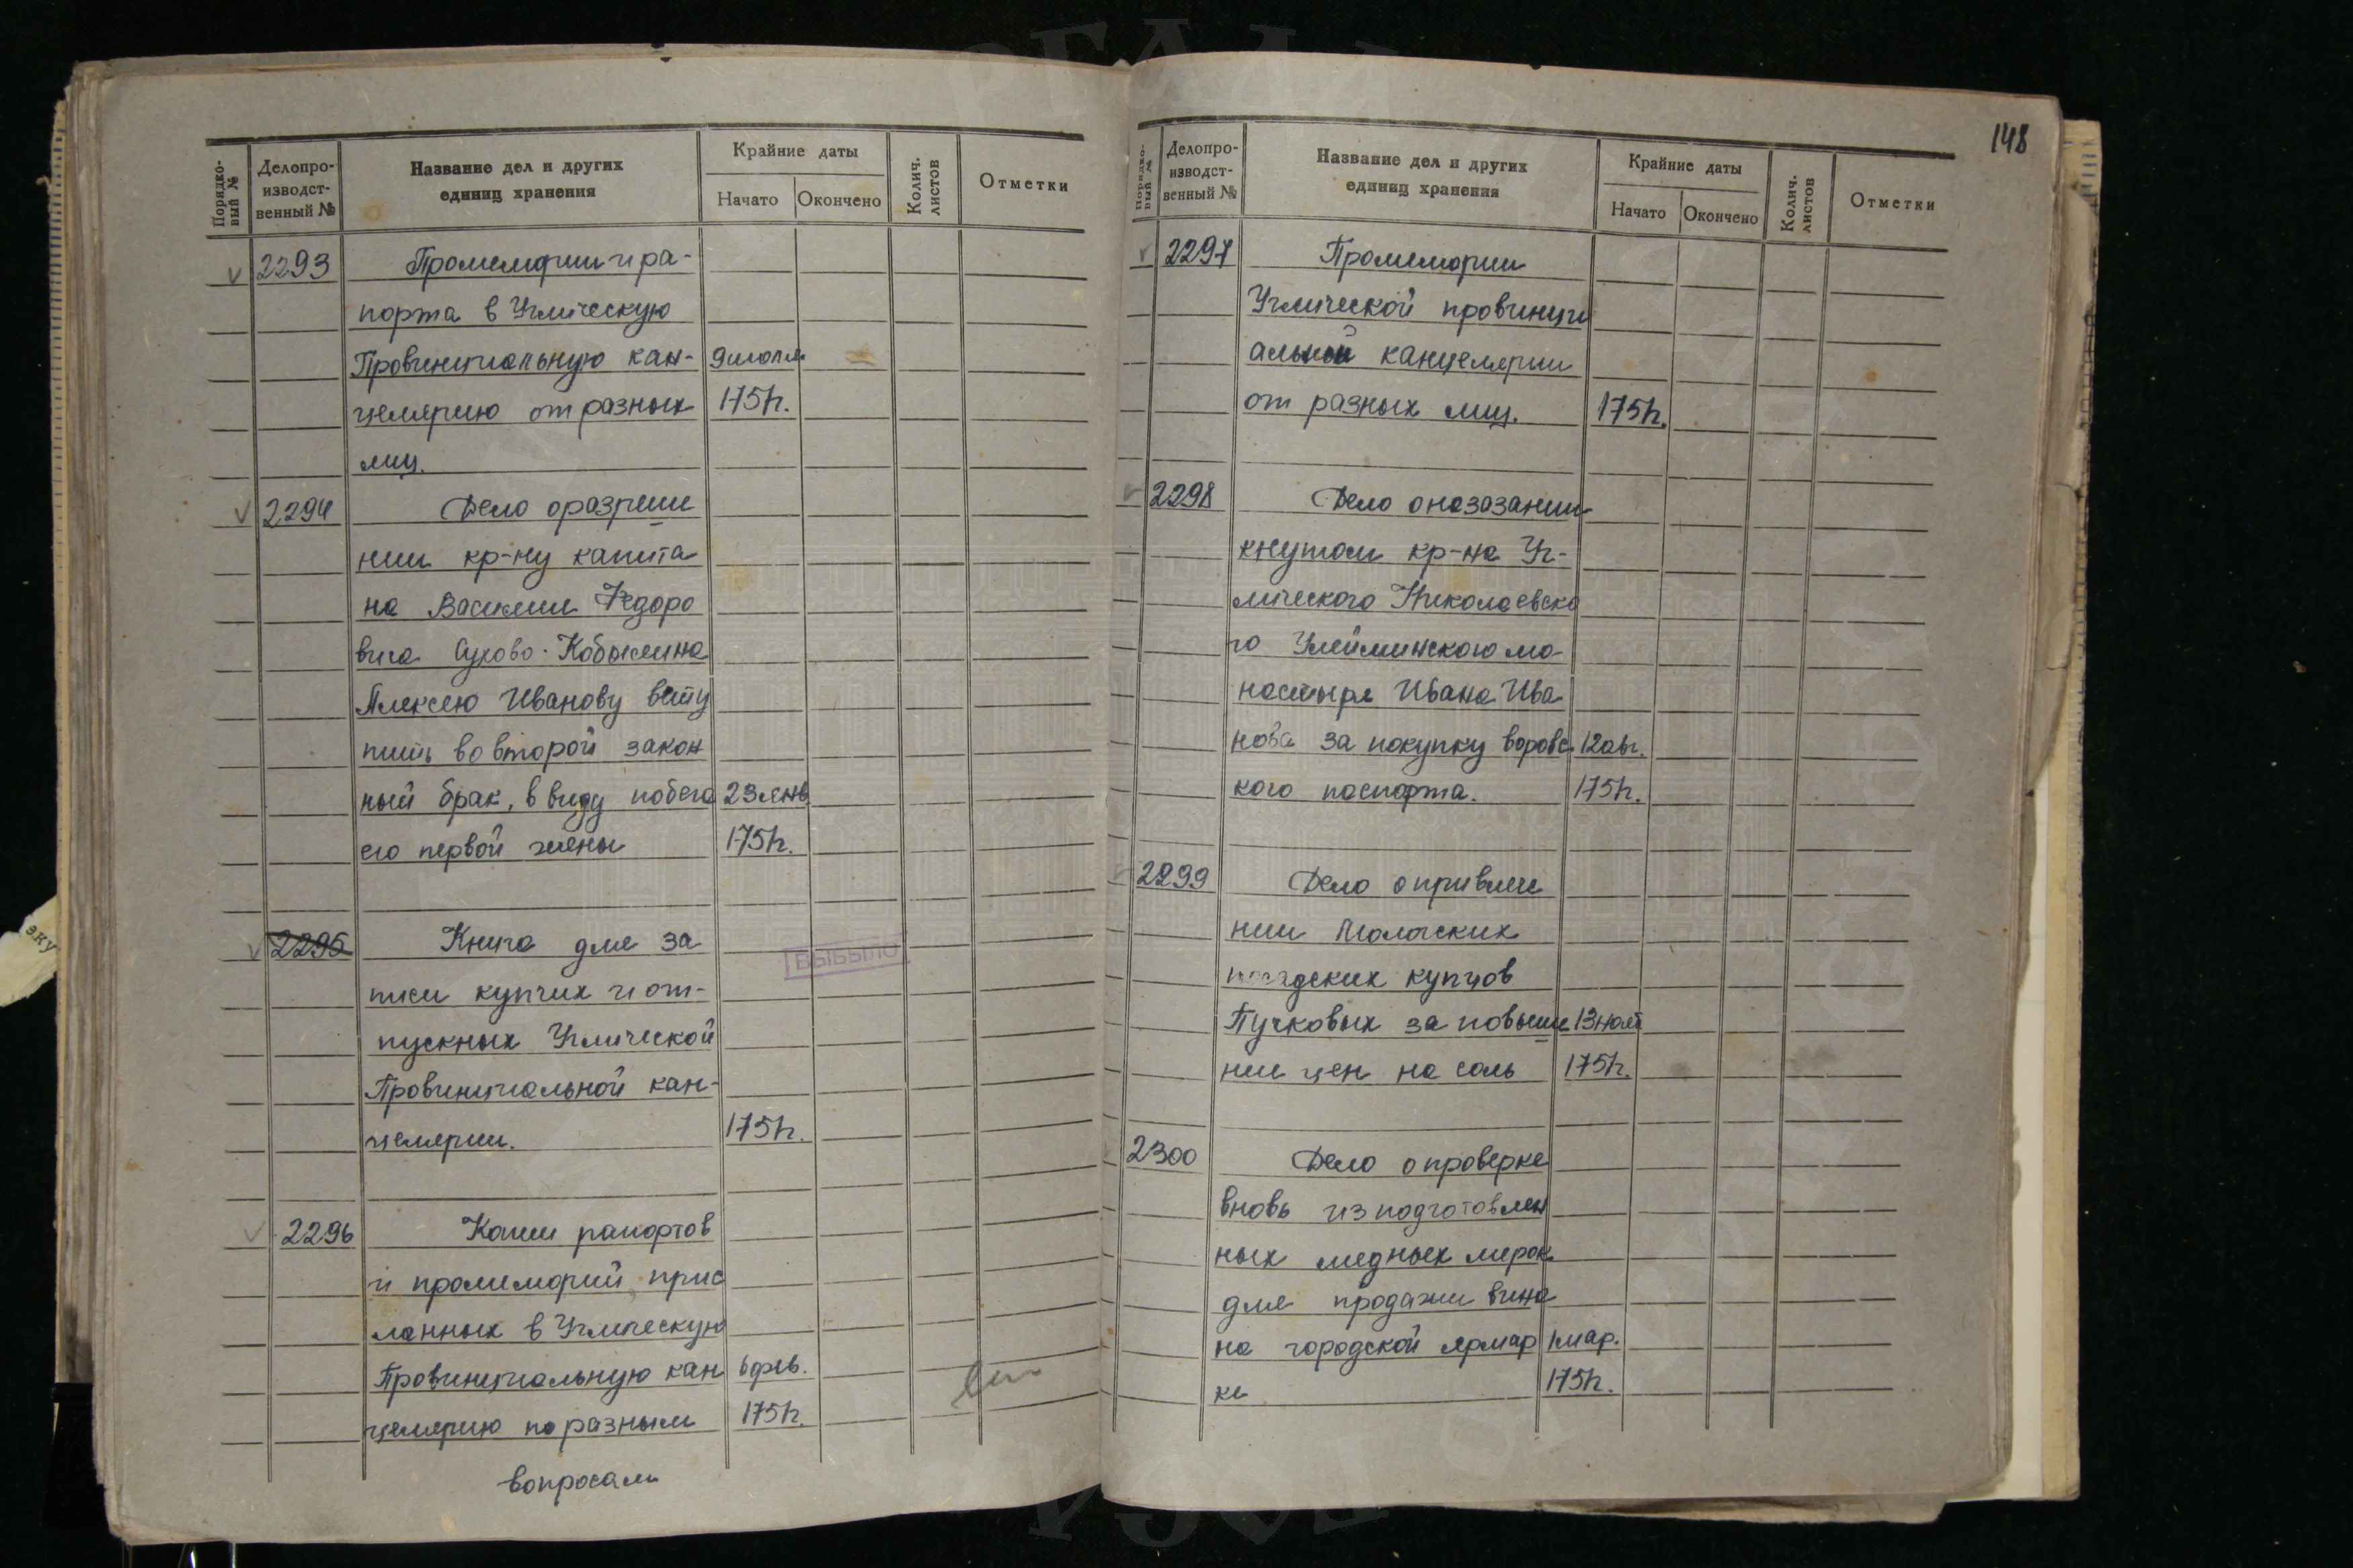 148
Порядко-
вый №
Делопро-
изводст-
венный №
Название дел и других
единиц хранения
Крайние даты
Начато
Окончено
Колич.
листов
Отметки
2293
Промемории и ра-
порта в Угличскую
Провинциальную кан- 9 июля
целярию от разных 175h.
лиц.
2294
Дело о разреше
нии кр-ну капита
на Василии Федоро
вича Сухово-Кобылина
Алексею Иванову всту
пить во второй закон
ный брак, в виду побега 23 янв
его первой жены 175h.
2295
Книга для за
ВЫБЫЛО
писи купчих и от-
пускных Угличской
Провинциальной кан-
целярии. 175h.
2296
Копии рапортов
и промеморий, прис
ланных в Угличскую
Провинциальную кан 6 фев.
целярию по разным 175h.
вопросам
Порядко-
вый №
Делопро-
изводст-
венный №
Название дел и других
единиц хранения
Крайние даты
Начато
Окончено
Колич.
листов
Отметки
2297
Промемории
Угличской провинци
альной канцелярии
от разных лиц. 175h.
2298
Дело о назазании
кнутом кр-на Уг-
личского Николаевско
го Улейминского мо-
настыря Ивана Ива
нова за покупку воровс 12 авг.
кого паспорта. 175h.
2299
Дело о привлече
нии Мологских
посадских купцов
Пучковых за повыше 13 нояб
ние цен на соль 175h.
2300
Дело о проверке
вновь изподготовлен
ных медных мерок
для продажи вина
на городской ярмар 1 мар.
ке 175h.
эку